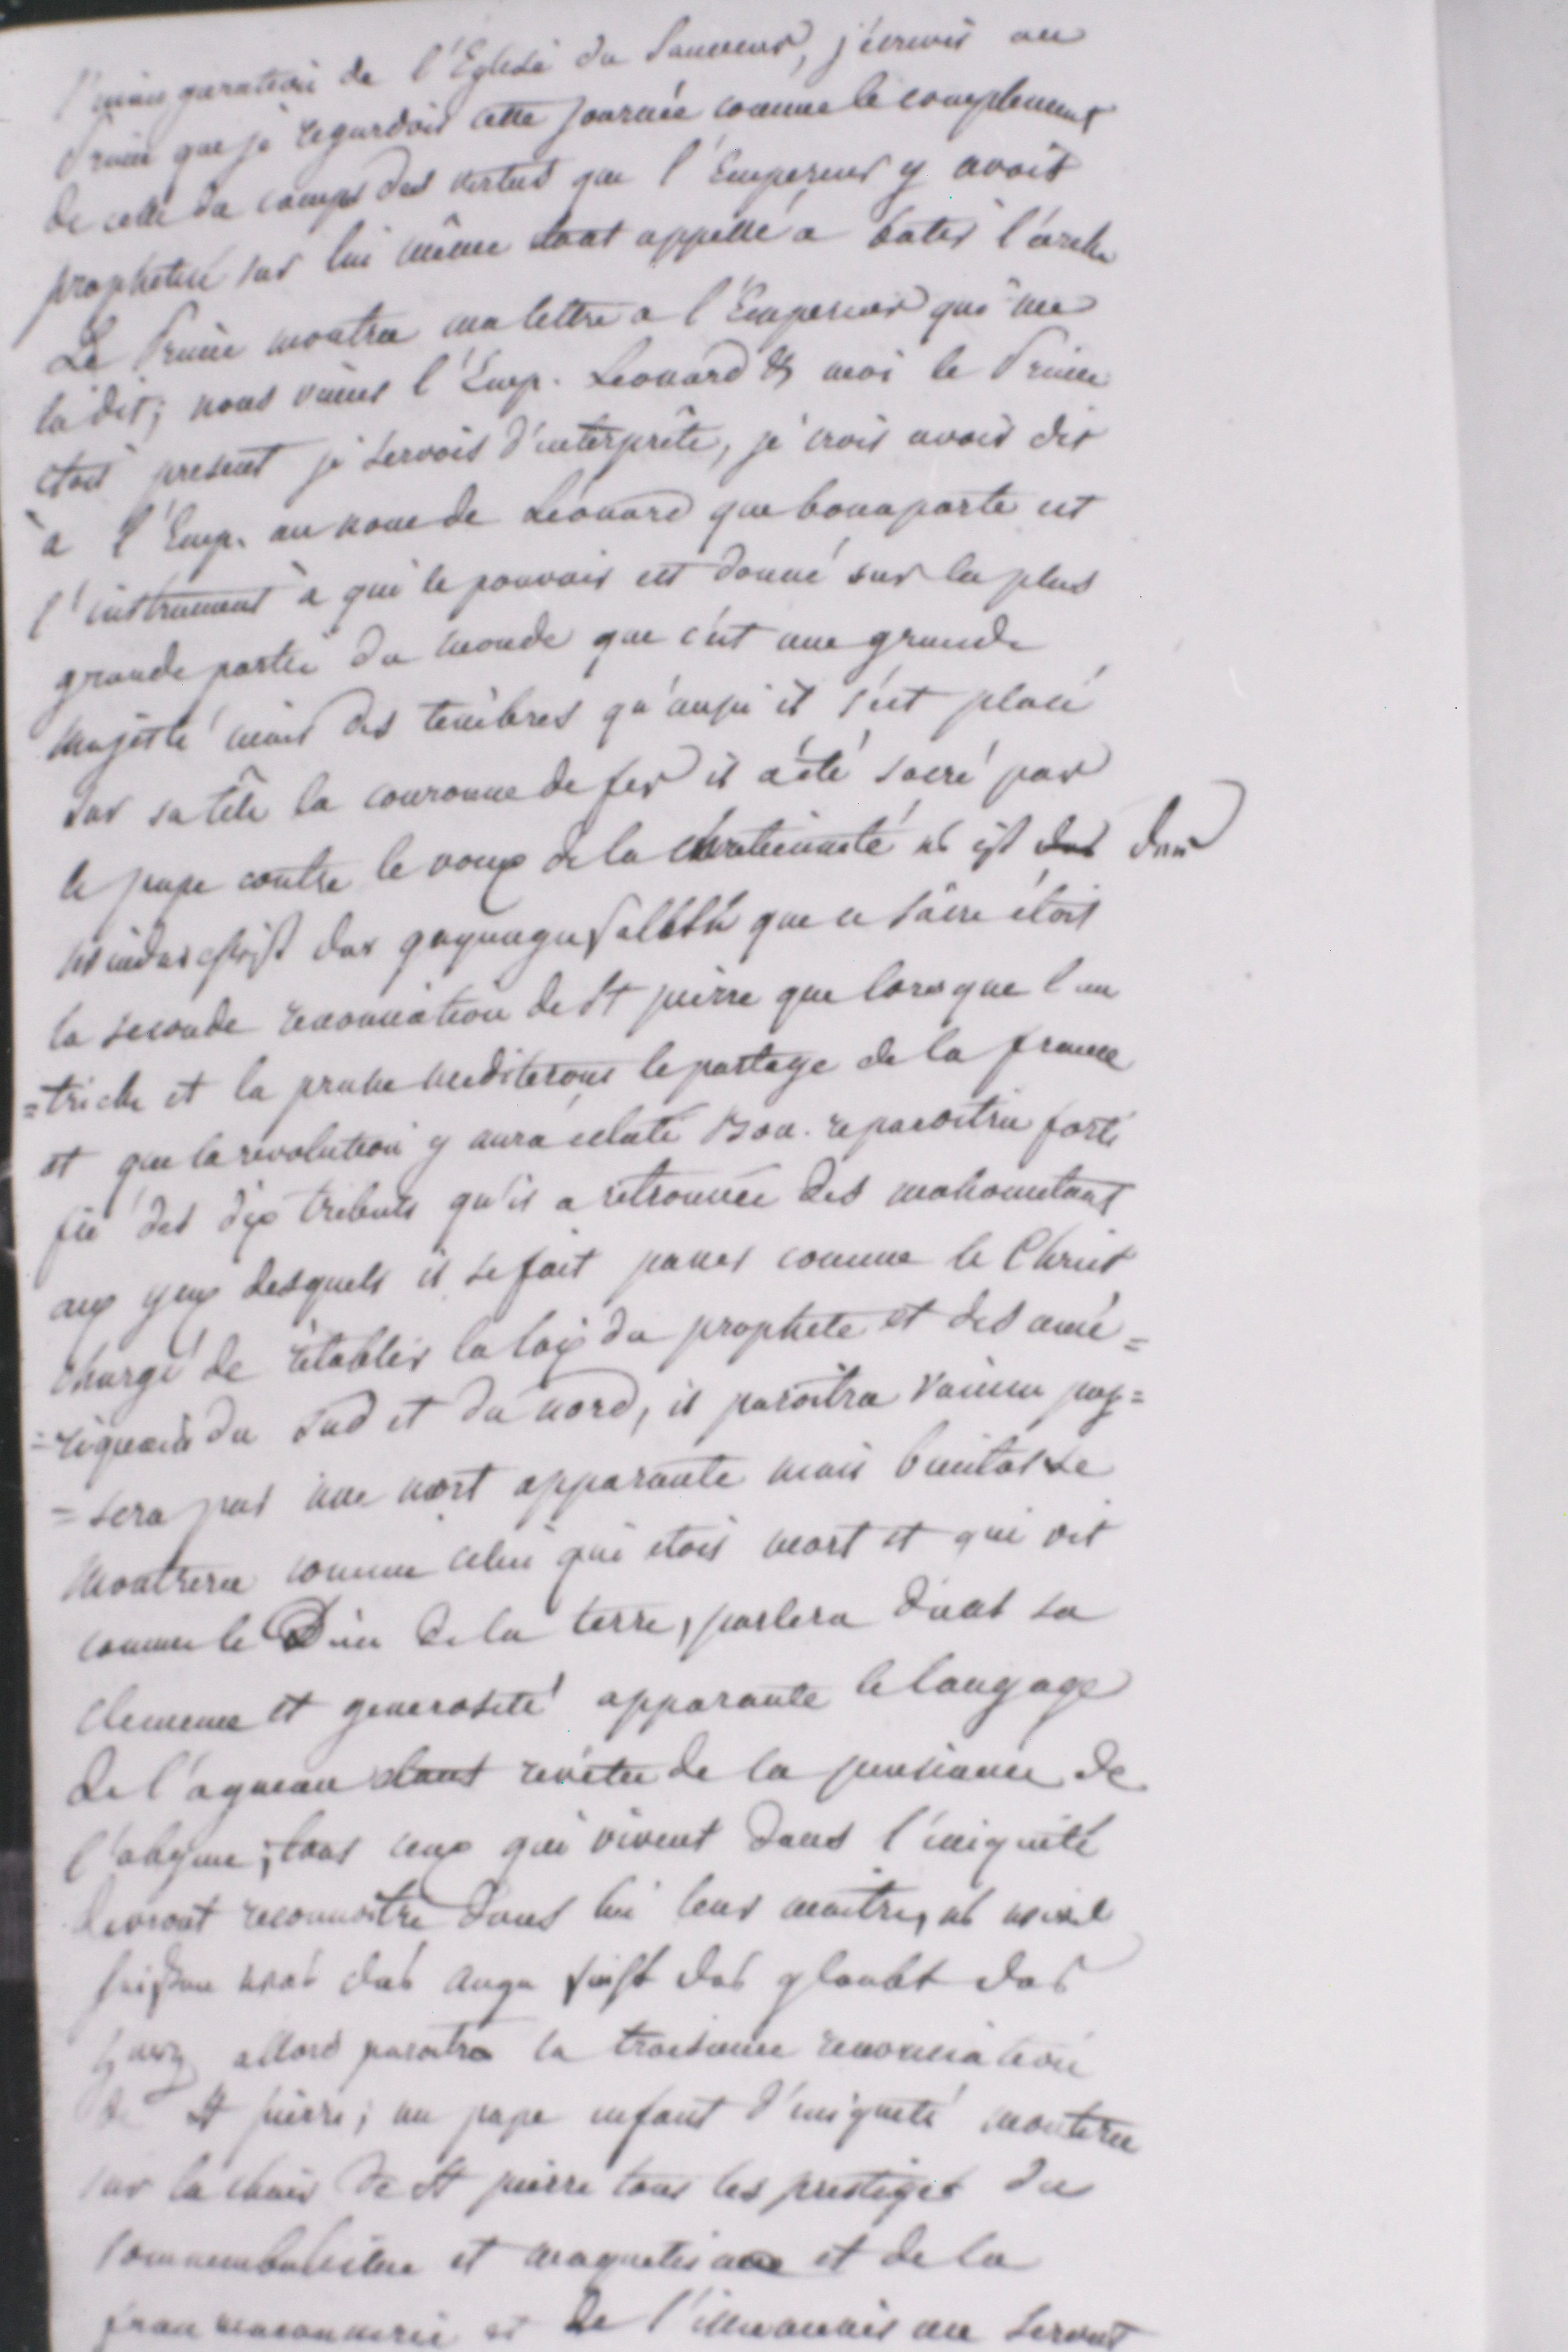 l'inauguration de l'Eglise du Sauveur, j'ecrivis au
Prince que je regardois cette journée comme le complement
de celle du camps des vertus que l'Empereur y avoit
prophetisé sur lui même étant appellé a batir l'arche
Le Prince montra ma lettre a l'Empereur qui me
la dit; nous vimes l'Emp. Leonard & moi le Prince
étoit present je servois d'interprête, je crois avoir dit
à l'Emp. au nom de Léonard que bonaparte est
l'instrument à qui le pouvoir est donné sur la plus
grande partie du monde que c'est une grande
majesté mais des tenèbres qu'aussi il s'est placé
sur sa tête la couronne de fer il a été sacré par
le pape contre le voeux de la chretienneté es ist das
das que ce sacre étoit
la seconde renonciation de St pierre que lorsque l'au
=triche et la prusse mediterons le partage de la france
et que la revolution y aura éclaté Bon. reparoitra forti
fié des dix tributs qu'il a retrouvée des mahometans
aux yeux desquels il se fait passer comme le Christ
chargé de rétablir la loix du prophete et des amé=
=riquain du sud et du nord, il paroitra vaincu pas=
=sera par une mort apparante mais bientot se
montrera comme celui qui etois mort et qui vit
comme le Dieu de la terre, parlera dans sa
clemence et generosité apparante le langage
de l'agneau étant revétu de la puissance de
l'abyme; tous ceux qui vivent dans l'iniquité
devront reconnoitre dans lui leur maitre, es wird
was das Auge sieht das glaubt das
Herz allors paroitra la troisieme renonciation
de St pierre; un pape enfant d'iniquité montera
sur la chair de St pierre tous les prestiges du
somnembulisme et magnetisme et de la
fran maconnerie et de l'illuminisme seront